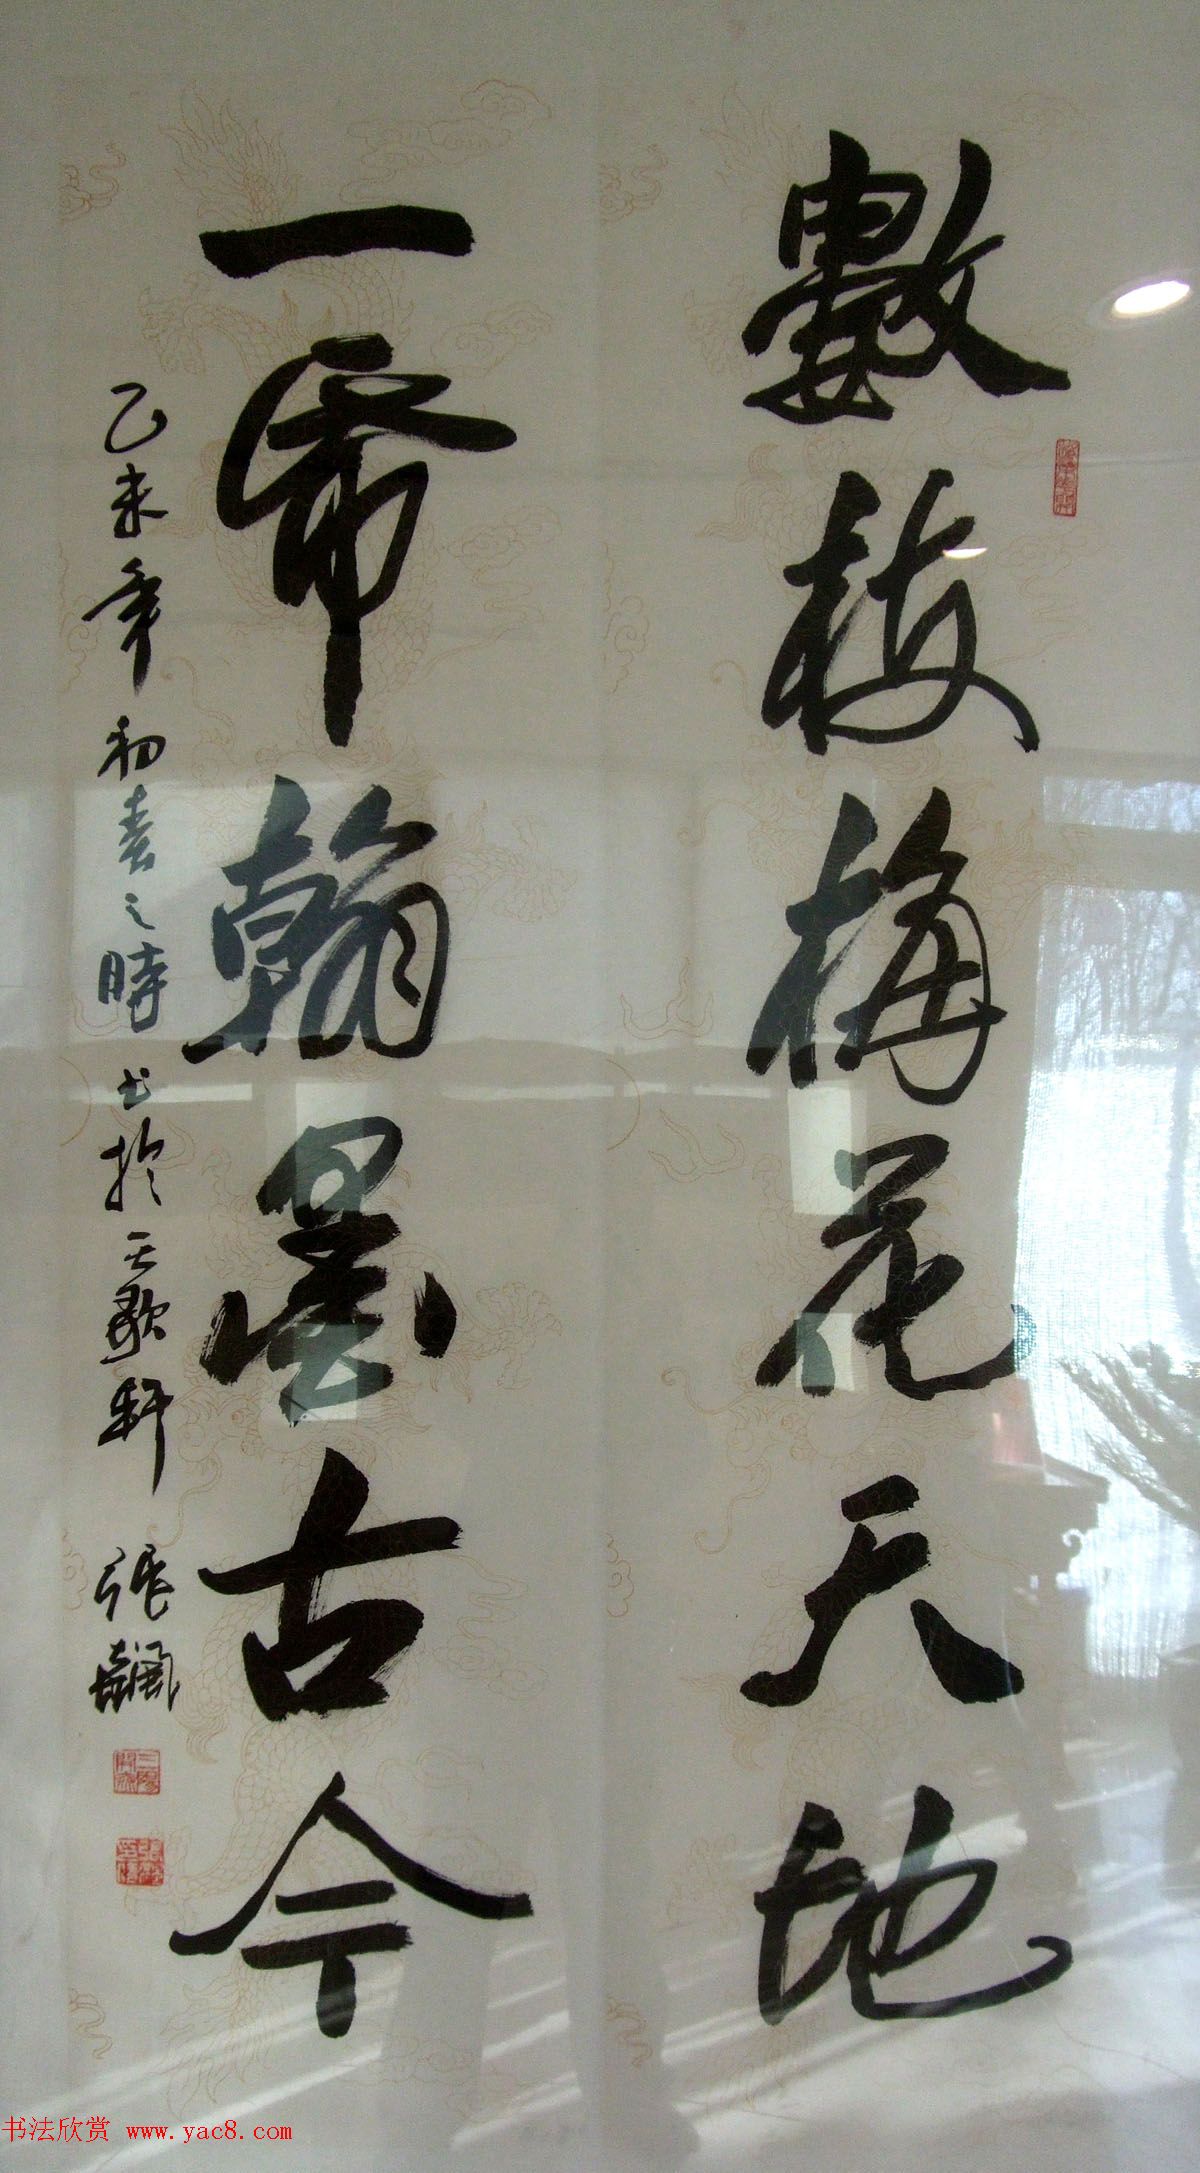 數枝梅花天地
一席翰墨古今
乙未年初春之時書於天歌軒 張
书法欣赏 www.yac8.com